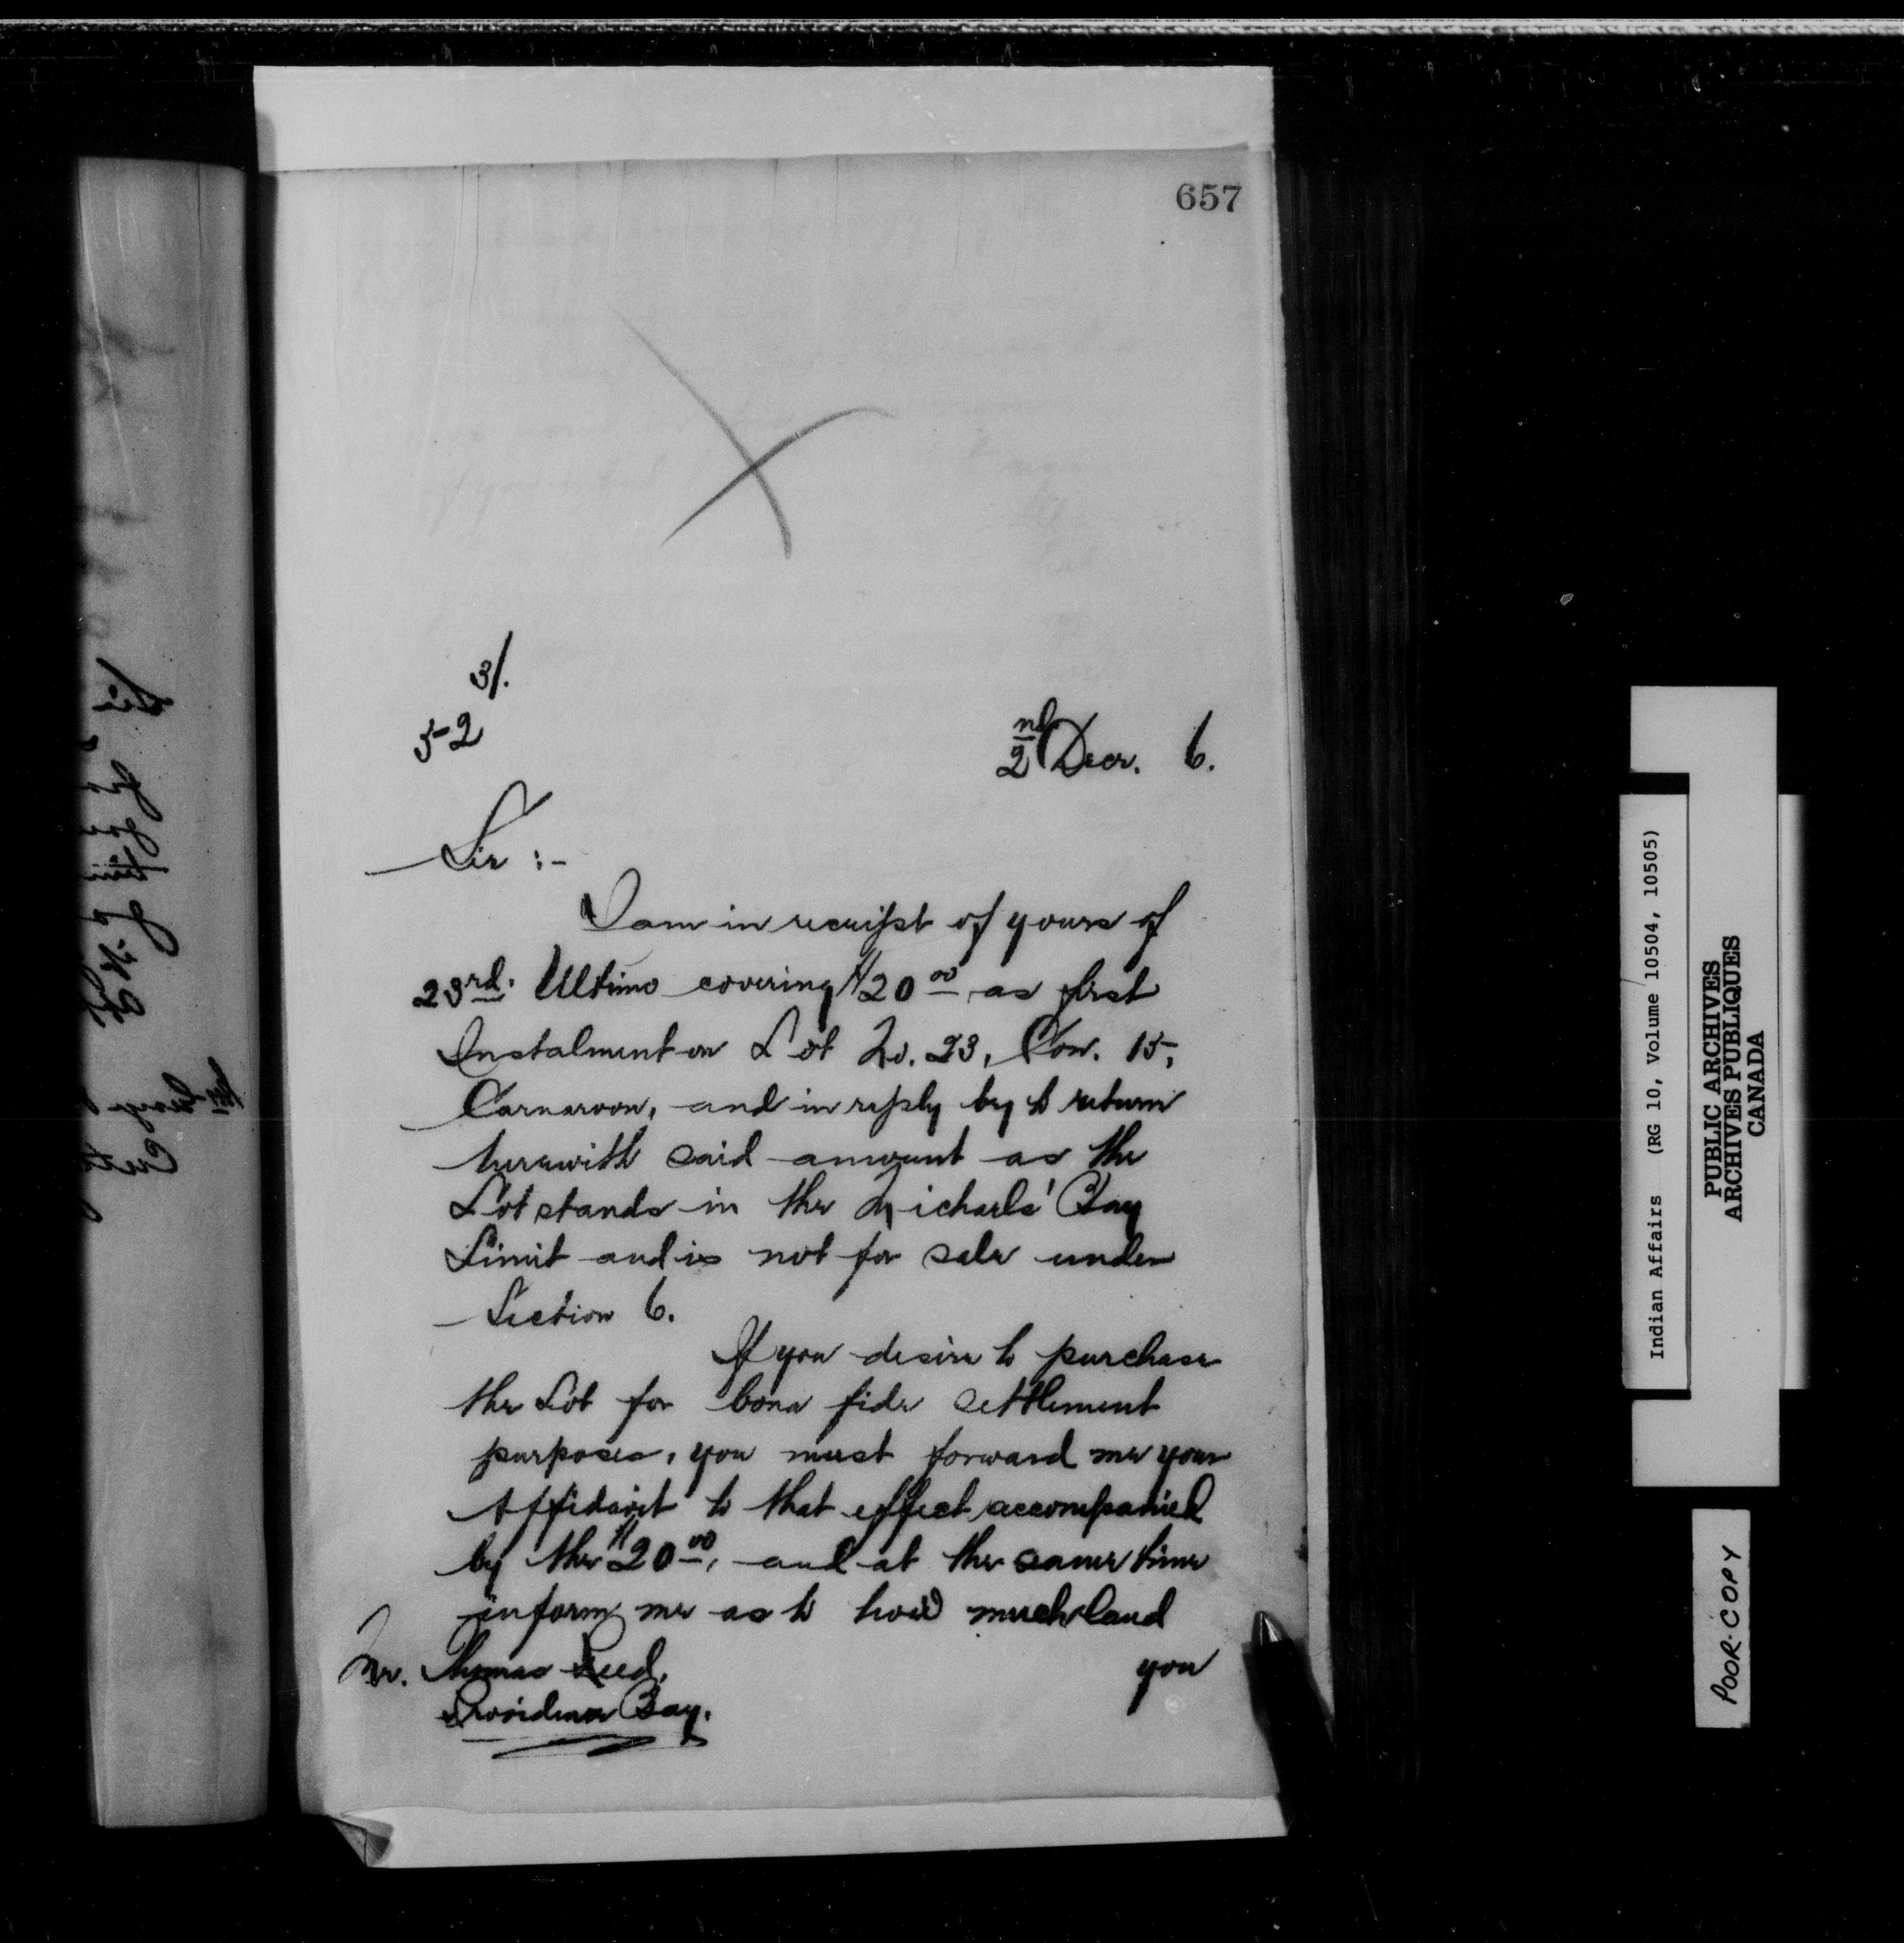 657
3/.
5-2
2nd Decr. 6.
Sir :-
I am in receipt of yours of
23rd. Ultimo covering $20 00 as first
Instalment on Lot No. 23, Con. 15,
Carnarvon, and in reply beg to return
herewith said amount as the
Lot stands in the Michaels' Bay
Limit and is not for sale under
Section 6.
If you desire to purchase
the Lot for bona fide settlement
purposes, you must forward me your
Affidavit to that effect accompanied
by the $20 00, and at the same time
inform me as to how much land
you
Mr. Thomas Reed,
Providence Bay.
Indian Affairs (RG 10, Volume 10504, 10505)
PUBLIC ARCHIVES
ARCHIVES PUBLIQUES
CANADA
POOR COPY